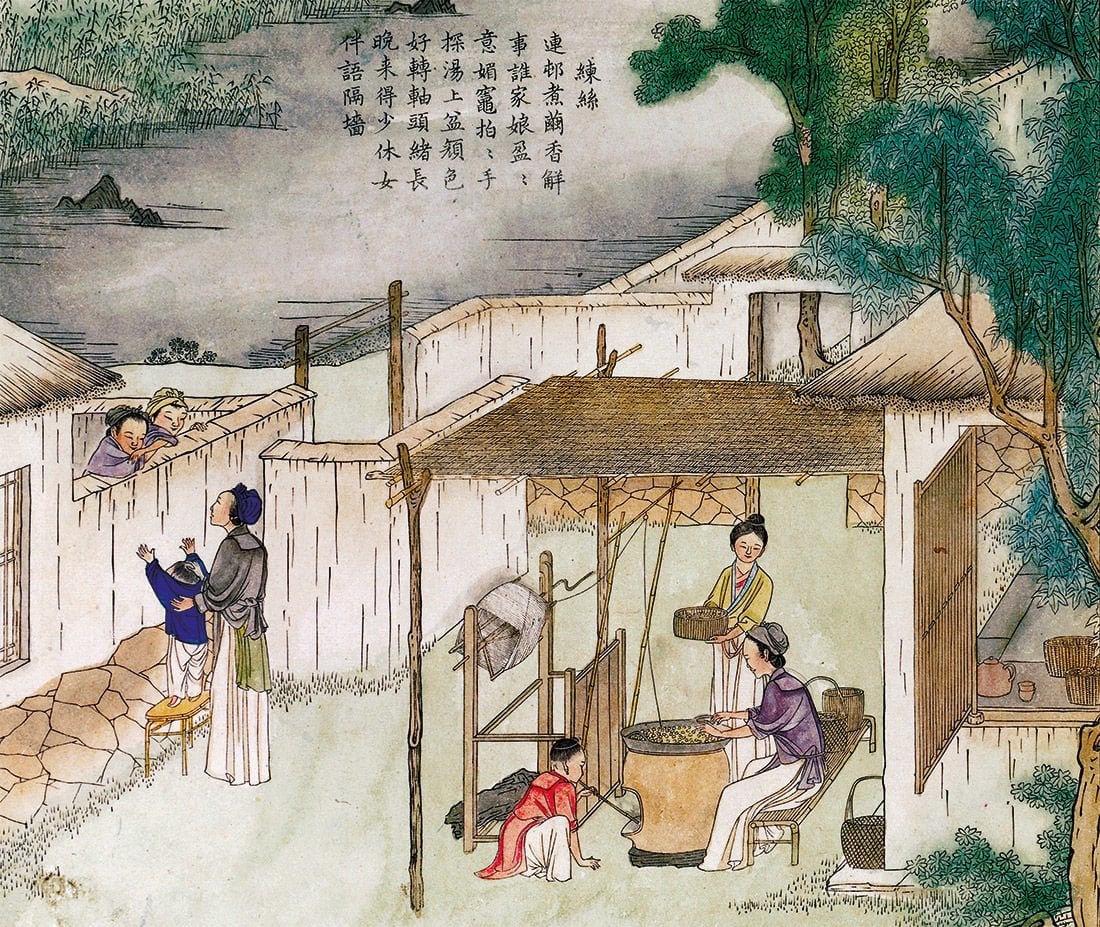 練絲
連邨煮繭香解
事誰家娘盈〻
意媚竈拍〻手
探湯上盆顔色
好轉軸頭緒長
晚来得少休女
伴語隔墻